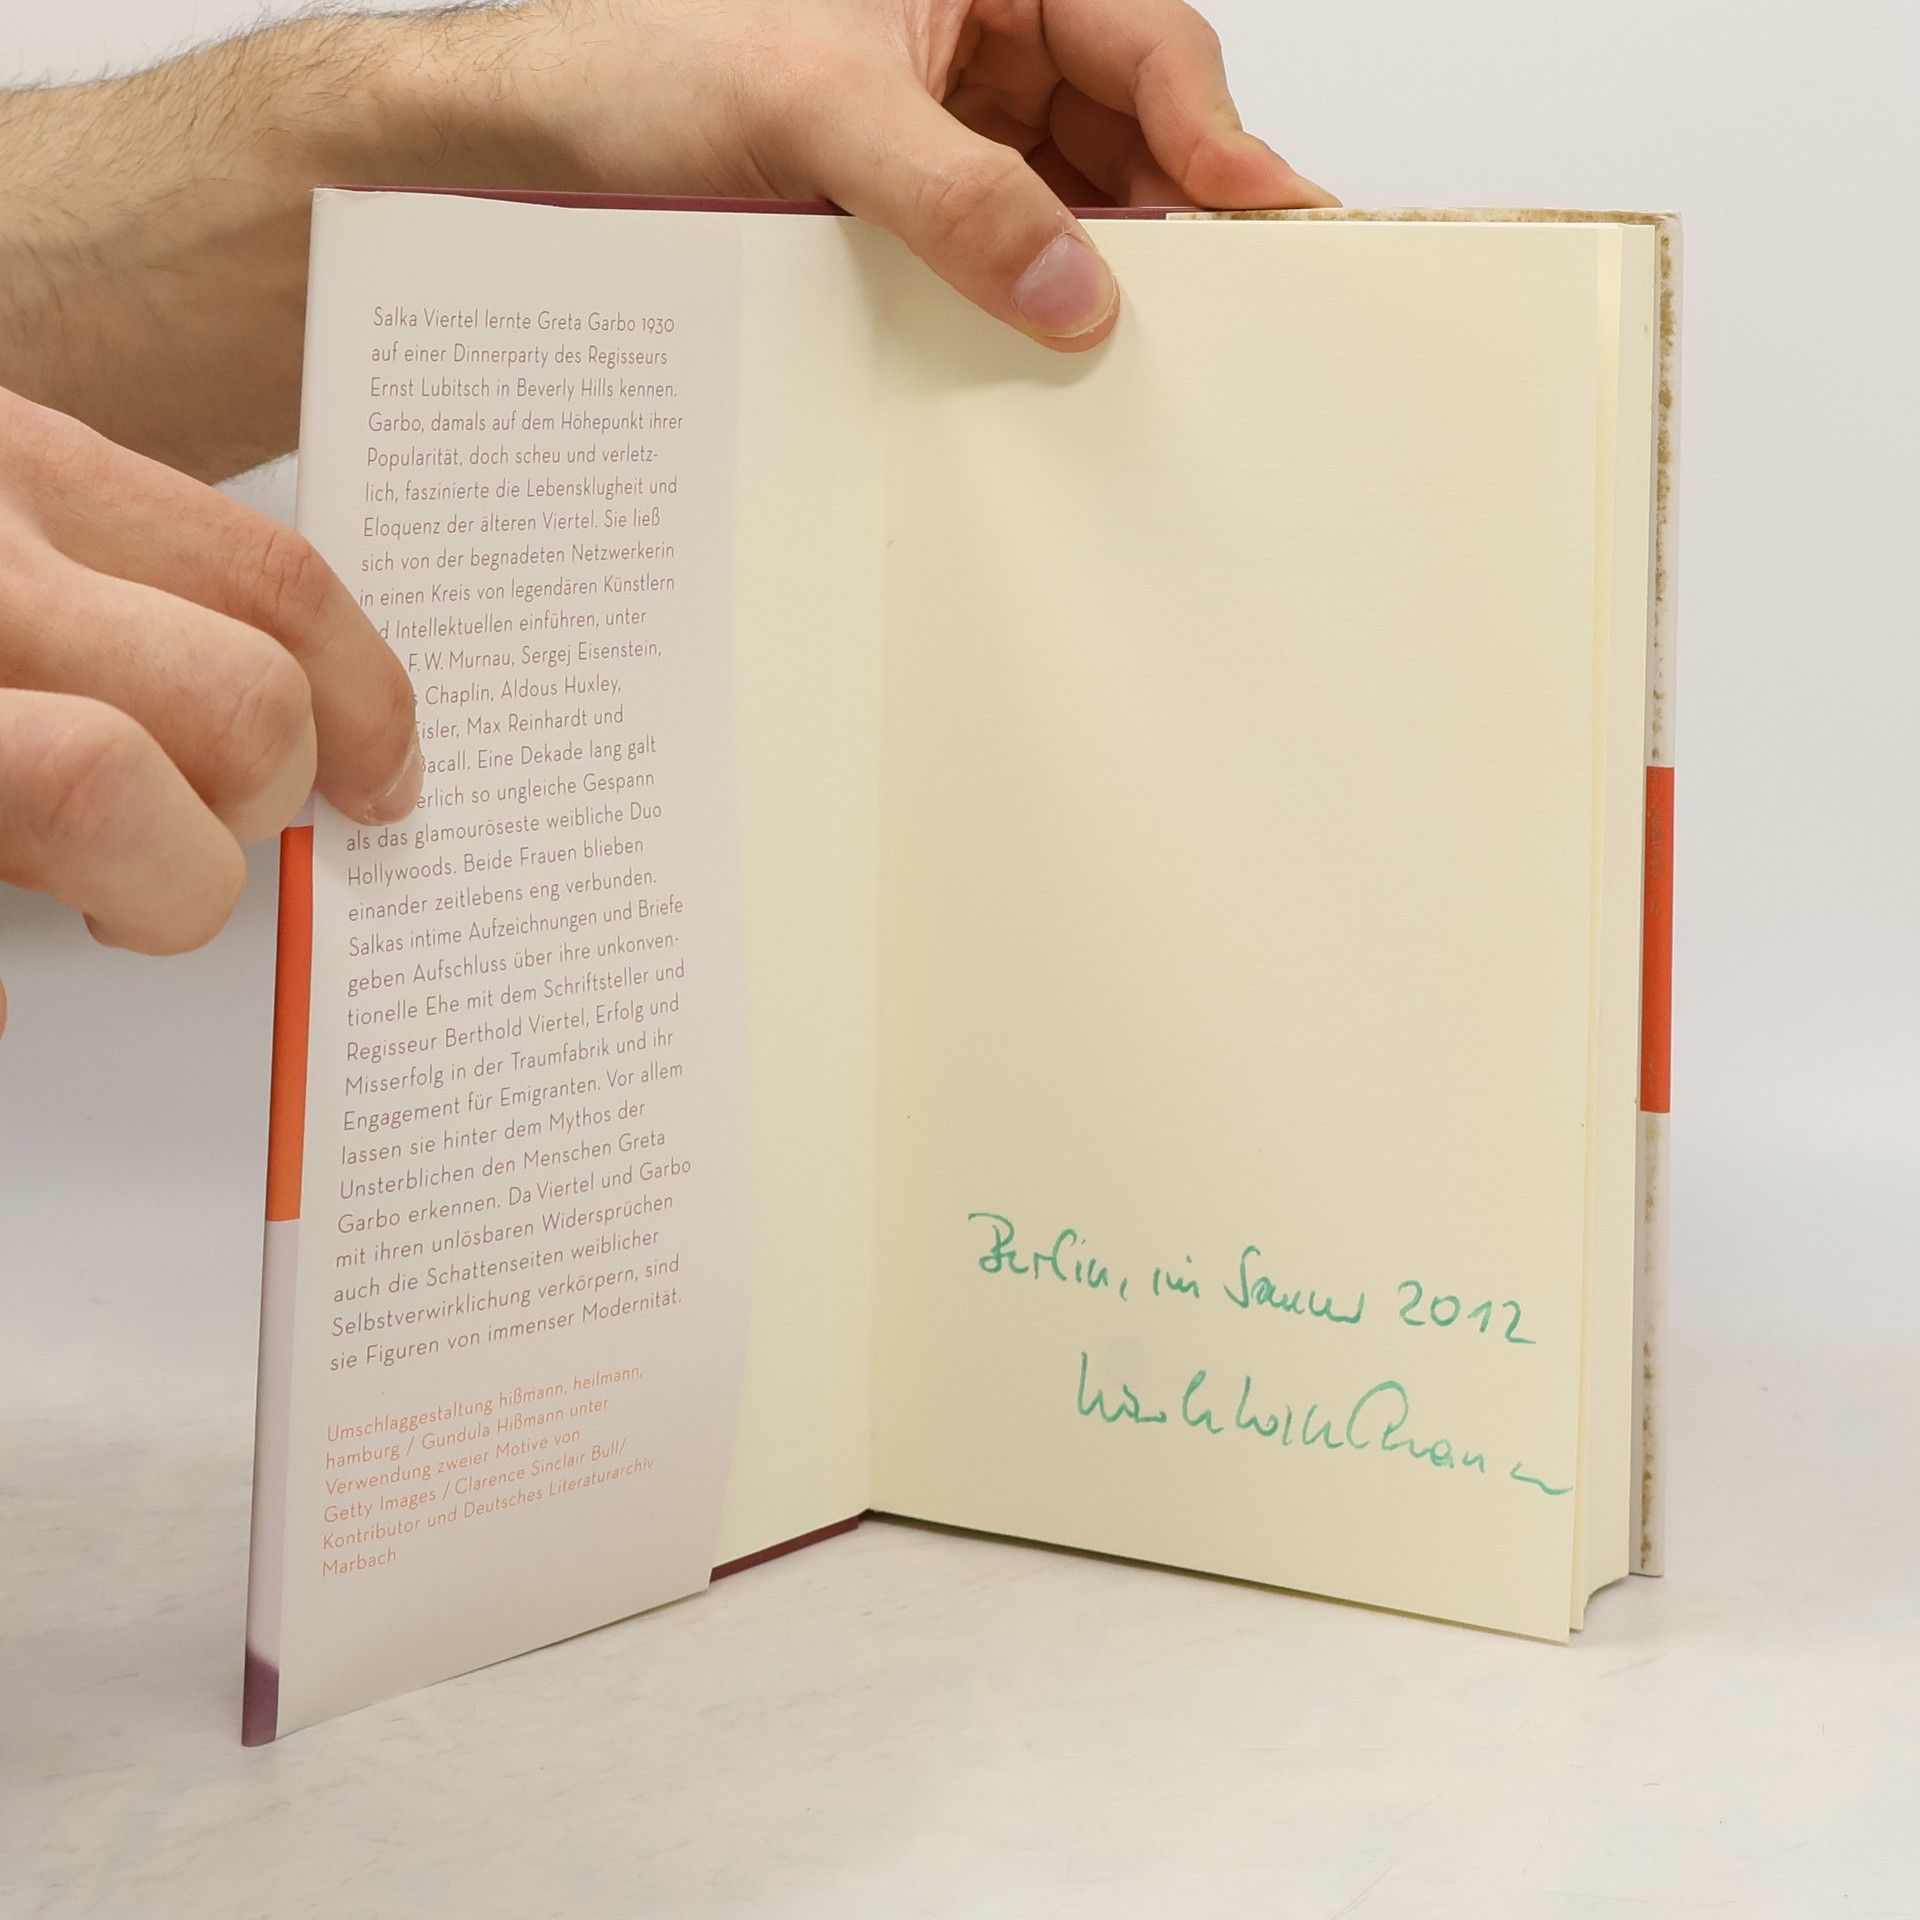 Salka Viertel lernte Greta Garbo 1930
auf einer Dinnerparty des Regisseurs
Ernst Lubitsch in Beverly Hills kennen.
Garbo, damals auf dem Höhepunkt ihrer
Popularität, doch scheu und verletz-
lich, faszinierte die Lebensklugheit und
Eloquenz der älteren Viertel. Sie ließ
sich von der begnadeten Netzwerkerin
in einen Kreis von legendären Künstlern
d Intellektuellen einführen, unter
F. W. Murnau, Sergej Eisenstein,
s Chaplin, Aldous Huxley,
Eisler, Max Reinhardt und
Bacall. Eine Dekade lang galt
erlich so ungleiche Gespann
als das glamouröseste weibliche Duo
Hollywoods. Beide Frauen blieben
einander zeitlebens eng verbunden.
Salkas intime Aufzeichnungen und Briefe
geben Aufschluss über ihre unkonven-
tionelle Ehe mit dem Schriftsteller und
Regisseur Berthold Viertel, Erfolg und
Misserfolg in der Traumfabrik und ihr
Engagement für Emigranten. Vor allem
lassen sie hinter dem Mythos der
Unsterblichen den Menschen Greta
Garbo erkennen. Da Viertel und Garbo
mit ihren unlösbaren Widersprüchen
auch die Schattenseiten weiblicher
Selbstverwirklichung verkörpern, sind
sie Figuren von immenser Modernität.
Umschlaggestaltung hißmann, heilmann,
hamburg / Gundula Hißmann unter
Verwendung zweier Motive von
Getty Images / Clarence Sinclair Bull/
Kontributor und Deutsches Literaturarchiv
Marbach
Berlin, im 2012